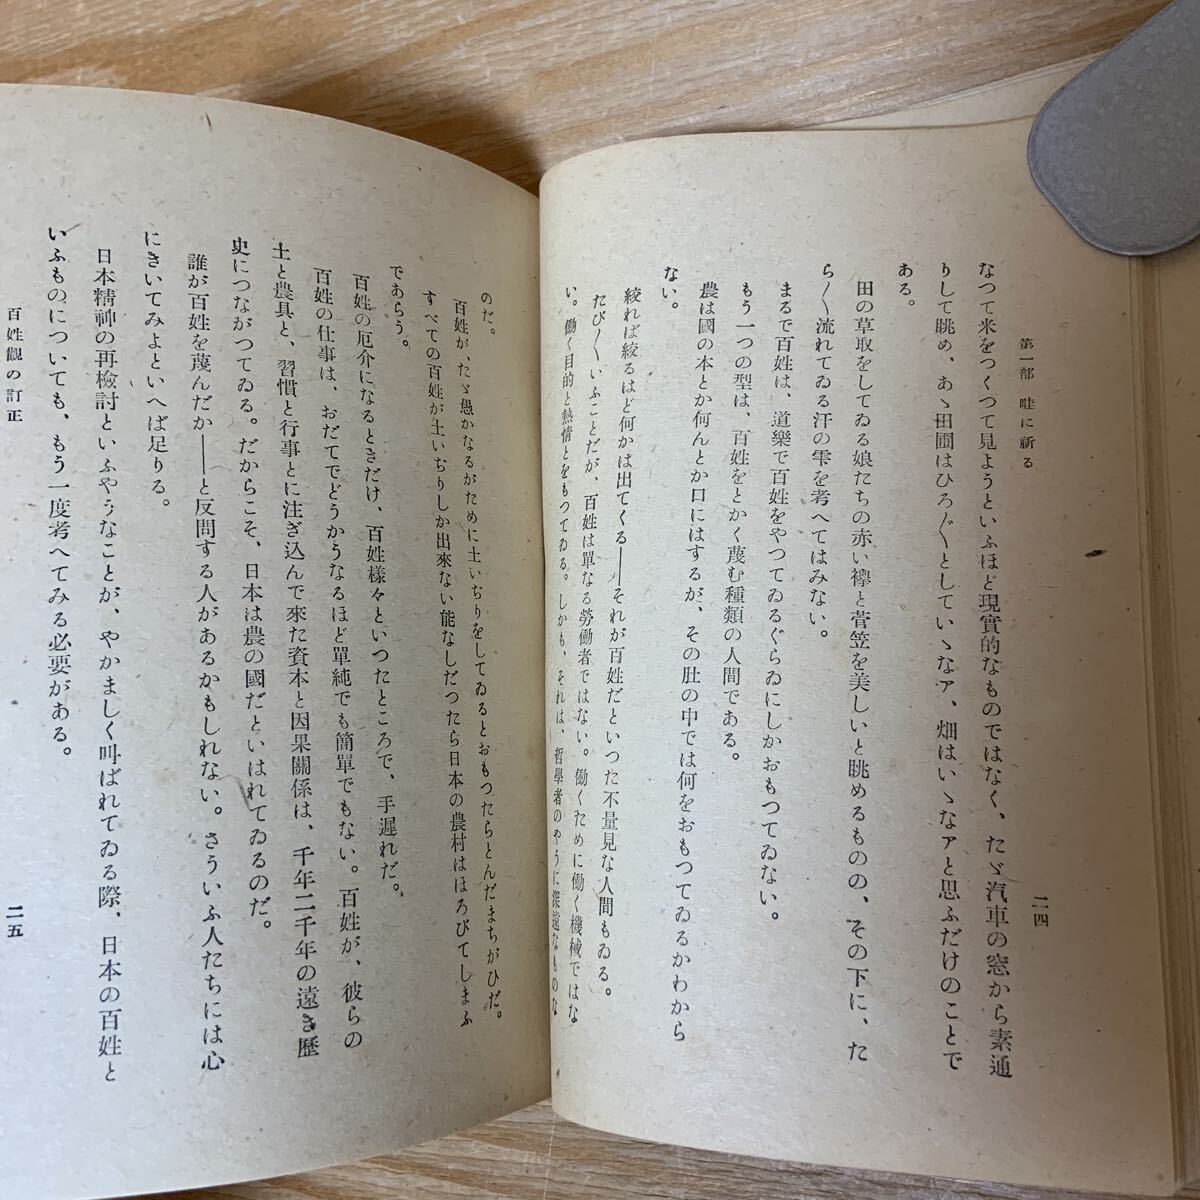 第一部　畦に祈る
二四
なつて米をつくつて見ようといふほど現實的なものではなく、たゞ汽車の窓から素通
りして眺め、あゝ田圃はひろ〴〵としていゝなァ、畑はいゝなァと思ふだけのことで
ある。
田の草取をしてゐる娘たちの赤い襷と菅笠を美しいと眺めるものの、その下に、た
ら〳〵流れてゐる汗の雫を考へてはみない。
まるで百姓は、道樂で百姓をやつてゐるぐらゐにしかおもつてゐない。
もう一つの型は、百姓をとかく蔑む種類の人間である。
農は國の本とか何んとか口にはするが、その肚の中では何をおもつてゐるかわから
ない。
絞れば絞るほど何かは出てくる――それが百姓だといつた不量見な人間もゐる。
たび〳〵いふことだが、百姓は單なる勞働者ではない。働くために働く機械ではな
い。働く目的と熱情とをもつてゐる。しかも、それは、哲學者のやうに深遠なものな
のだ。
百姓が、たゞ愚かなるがために土いぢりをしてゐるとおもつたらとんだまちがひだ。
すべての百姓が土いぢりしか出來ない能なしだつたら日本の農村はほろびてしまふ
であらう。
百姓の厄介になるときだけ、百姓樣々といつたところで、手遲れだ。
百姓の仕事は、おだてでどうかうなるほど單純でも簡單でもない。百姓が、彼らの
土と農具と、習慣と行事とに注ぎ込んで來た資本と因果關係は、千年二千年の遠き歷
史につながつてゐる。だからこそ、日本は農の國だといはれてゐるのだ。
誰が百姓を蔑んだか――と反問する人があるかもしれない。さういふ人たちには心
にきいてみよといへば足りる。
日本精神の再檢討といふやうなことが、やかましく叫ばれてゐる際、日本の百姓と
いふものについても、もう一度考へてみる必要がある。
百姓觀の訂正
二五